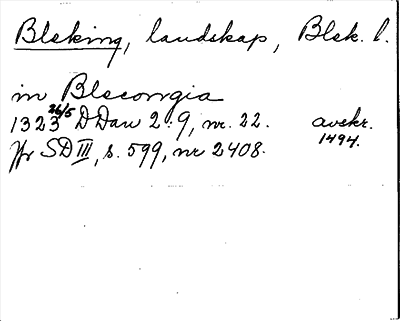 Bleking, landskap, Blek. l.
in Blecongia
1323 26/5 DDan 2:9, nr. 22. avskr. 1494.
Jfr SD III, s. 599, nr 2408.